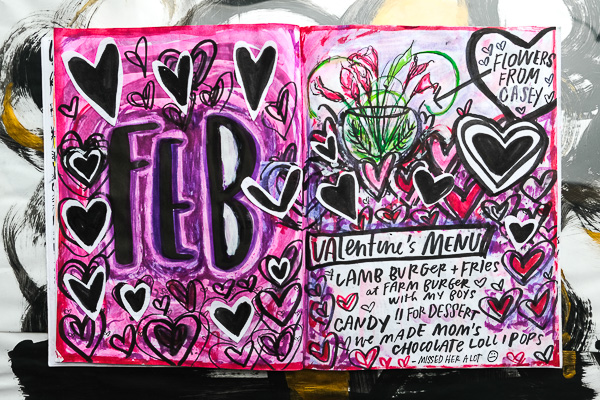 FEB
FLOWERS
FROM
CASEY
VALENTINE'S MENU
LAMB BURGER + FRIES
at FARM BURGER
WITH MY BOYS
CANDY !! FOR DESSERT
we MADE MOM'S
CHOCOLATE LOLLIPOPS
- MISSED HER A LOT